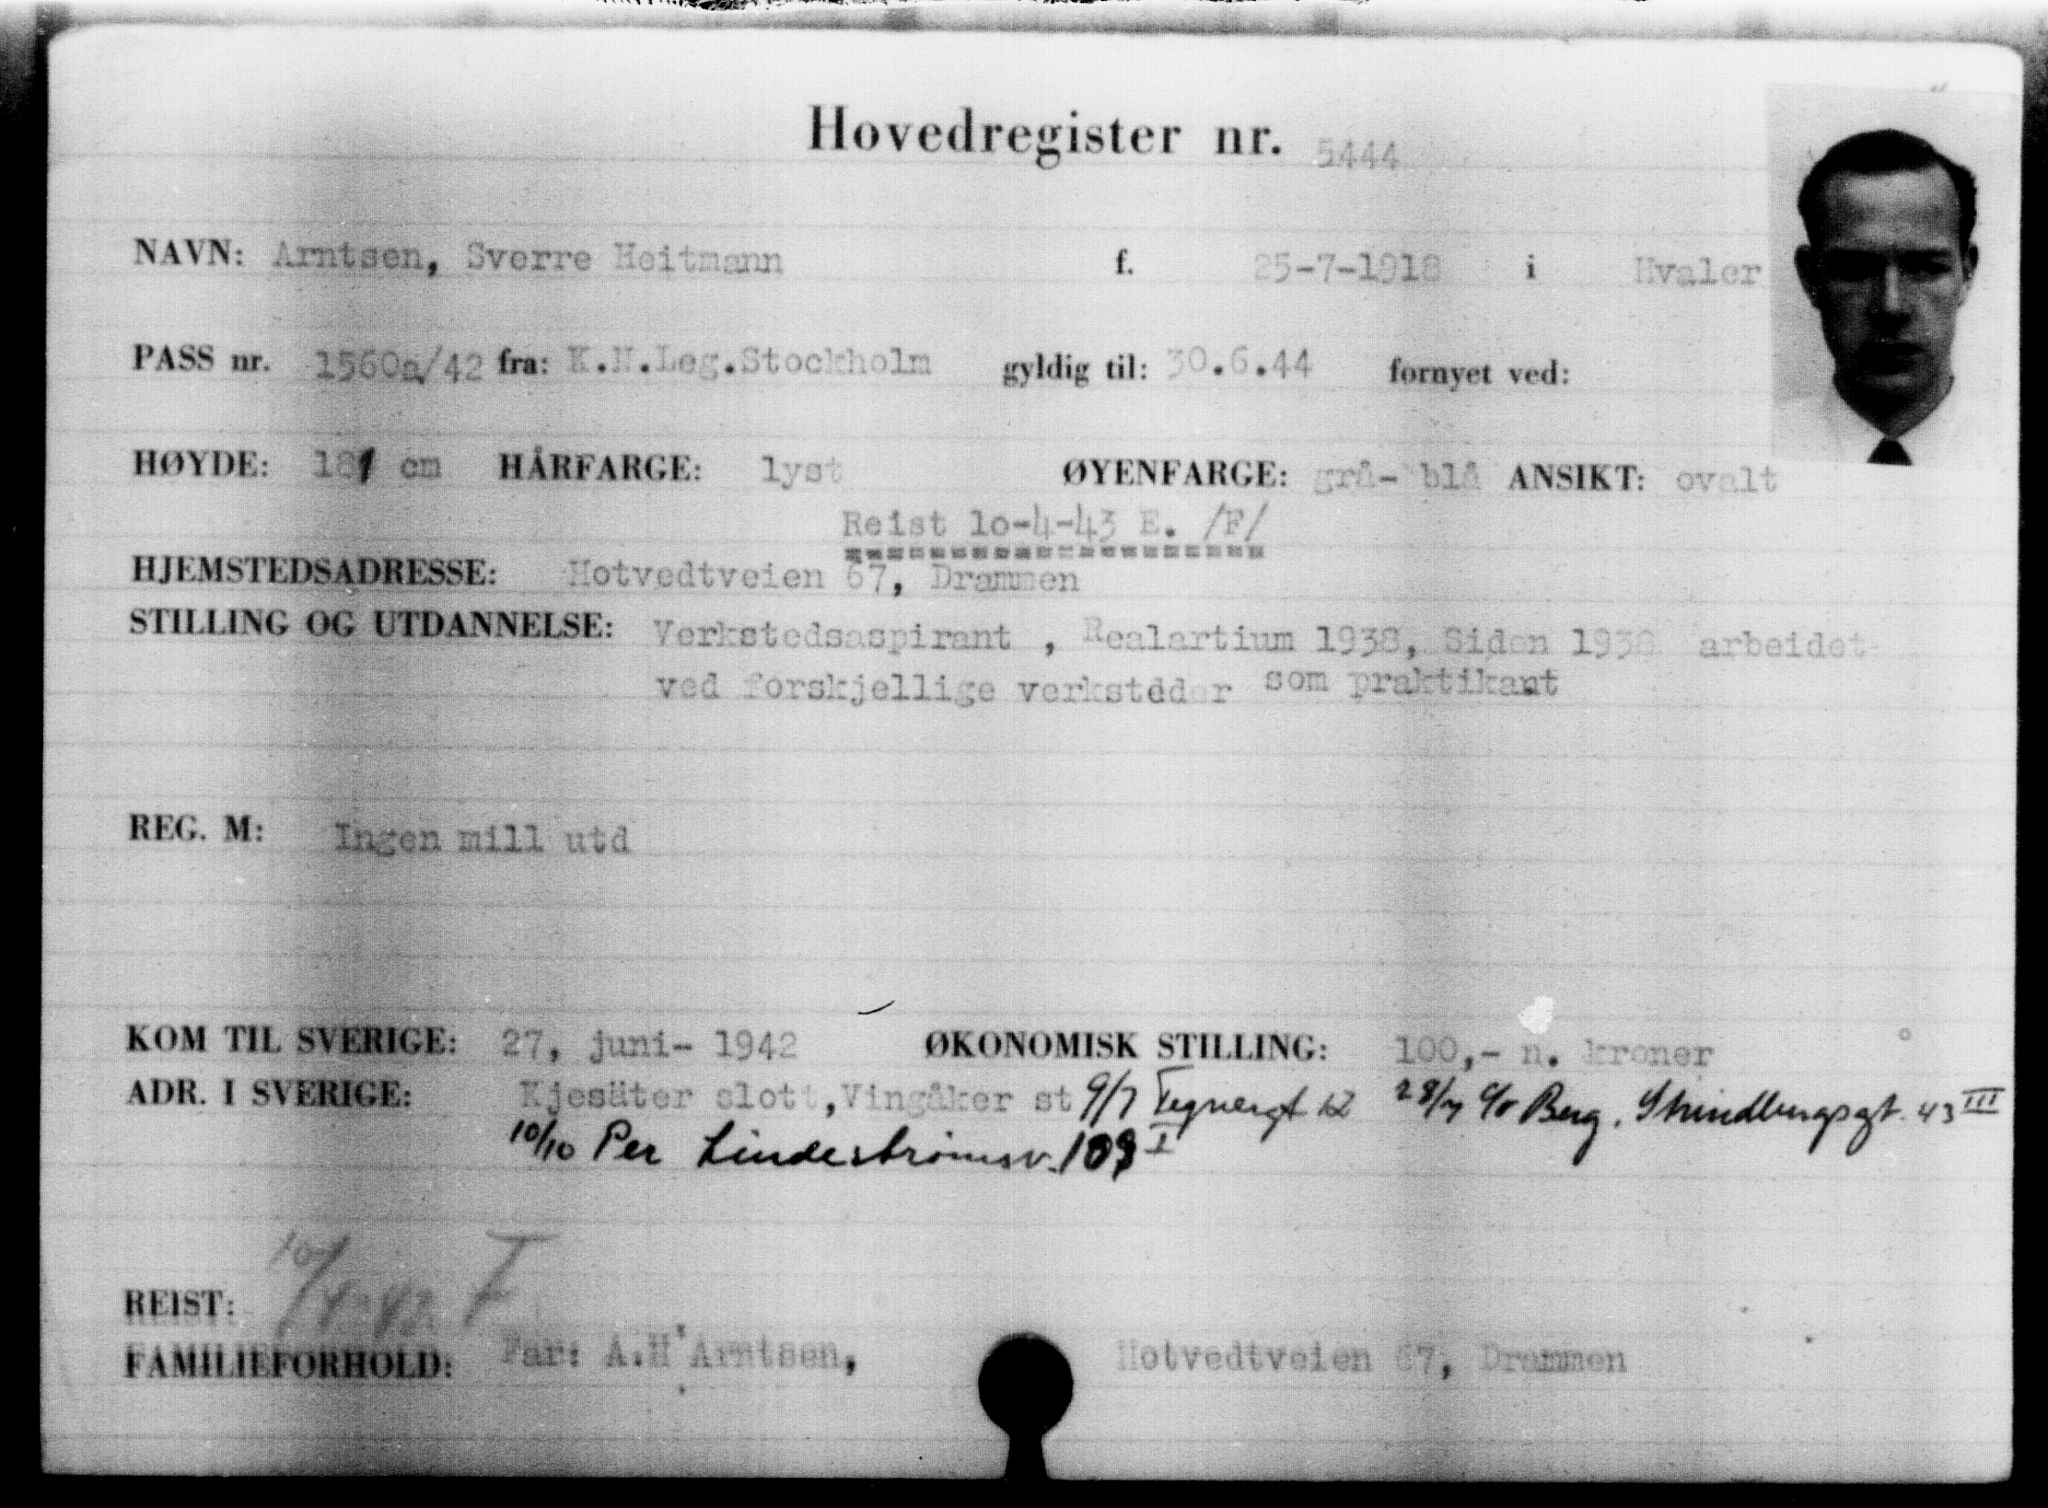 Hovedregister nr. 5444
NAVN: Arntsen, Sverre Heitmann f. 25-7-1918 i Hvaler
PASS nr. 1560a/42 fra: K.N.Leg.Stockholm gyldig til: 30.6.44 fornyet ved:
HØYDE: 181 cm HÅRFARGE: lyst ØYENFARGE: grå- blå ANSIKT: ovalt
Reist 1o-4-43 E. /F/
HJEMSTEDSADRESSE: Hotvedtveien 67, Drammen
STILLING OG UTDANNELSE: Verkstedsaspirant , Realartium 1938, Siden 1938 arbeidet
ved forskjellige verksteder som praktikant
REG. M: Ingen mill utd
KOM TIL SVERIGE: 27, juni- 1942 ØKONOMISK STILLING: 100,- n. kroner
ADR. I SVERIGE: Kjesäter slott,Vingåker st 9/7 Tegnergt 12 28/7 c/o Berg. Strindbergsgt. 43 III
10/10 Per Lindeströmsv. 109 I
REIST: 10/4-43. F
FAMILIEFORHOLD: Far: A.H Arntsen, Hotvedtveien 67, Drammen